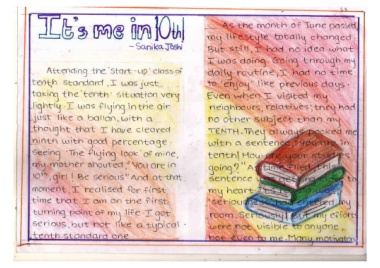 It's me in 10th!
- Sanika Joshi
Attending the 'start-up' class of
tenth standard, I was just
taking the 'tenth' situation very
lightly. I was flying in the air
just like a ballon, with a
thought that I have cleared
ninth with good percentage
seeing 'the flying look' of mine,
my mother shouted, "You are in
10th, girl! Be serious" And at that
moment, I realised for first
time that I am on the first
turning point of my life. I got
serious, but not like a typical
tenth standard one.
As the month of June passed
my lifestyle totally changed.
But still, I had no idea what
I was doing. Going through my
daily routine, I had no time
to 'enjoy' like previous days.
Even when I visited my
neighbours, relatives; they had
no other subject than my
TENTH. They always
with a sentence,
tenth! How is your
going?"
sentence to
my heart
serious my
room. Seriously! but my efforts
were not visible to anyone,
not even to me. Many